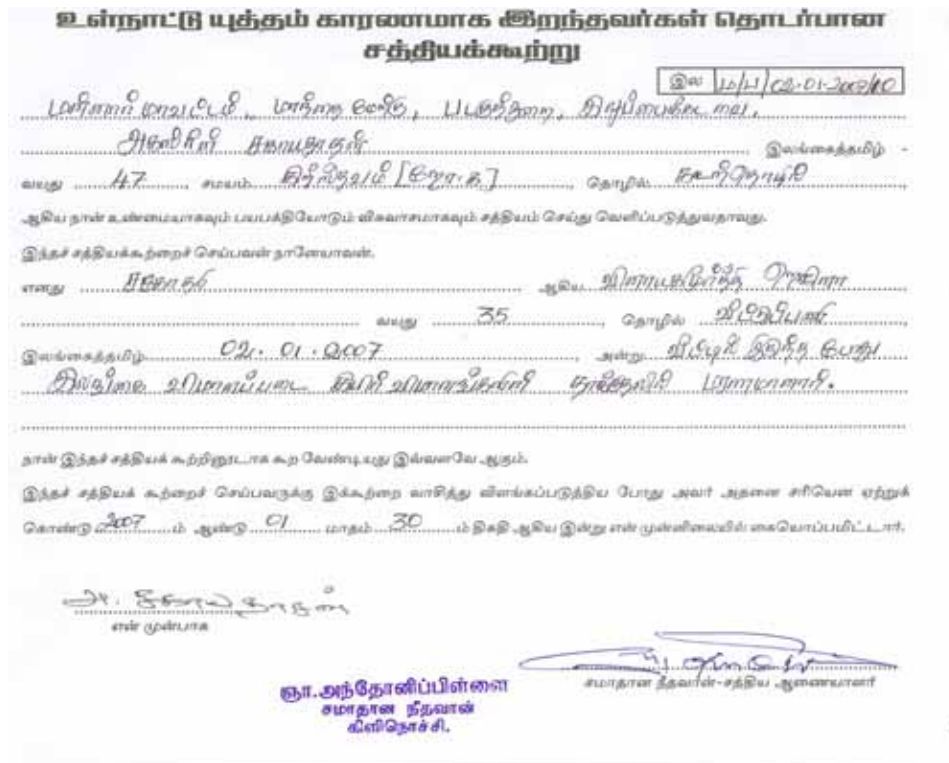 உள்நாட்டு யுத்தம் காரணமாக இறந்தவர்கள் தொடர்பான
சத்தியக்கூற்று
இல 02-01-2007/10
மன்னார் மாவட்டம், மாந்தை மேற்கு,
இலங்கைத்தமிழ் -
வயது 47, சமயம் கிறிஸ்தவம் தொழில்
ஆகிய நான் உண்மையாகவும் பயபக்தியோடும் விசுவாசமாகவும் சத்தியம் செய்து வெளிப்படுத்துவதாவது.
இந்தச் சத்தியக்கூற்றைச் செய்பவன் நானேயாவன்.
எனது சகோதரி ஆகிய
வயது 35, தொழில் வீட்டுப்பணி
இலங்கைத்தமிழ் 02. 01. 2007, அன்று வீட்டில் இருந்த போது
இலங்கை விமானப்படை கிபிர் விமானங்களின் தாக்குதலில் மரணமானார்.
நான் இந்தச் சத்தியக் கூற்றினூடாக கூற வேண்டியது இவ்வளவே ஆகும்.
இந்தச் சத்தியக் கூற்றைச் செய்பவருக்கு இக்கூற்றை வாசித்து விளங்கப்படுத்திய போது அவர் அதனை சரியென ஏற்றுக்
கொண்டு 2007 ம் ஆண்டு 01 மாதம் 30 ம் திகதி ஆகிய இன்று என் முன்னிலையில் கையொப்பமிட்டார்.
என் முன்பாக
சமாதான நீதவான்-சத்திய ஆணையாளர்
ஞா.அந்தோனிப்பிள்ளை
சமாதான நீதவான்
கிளிநொச்சி.